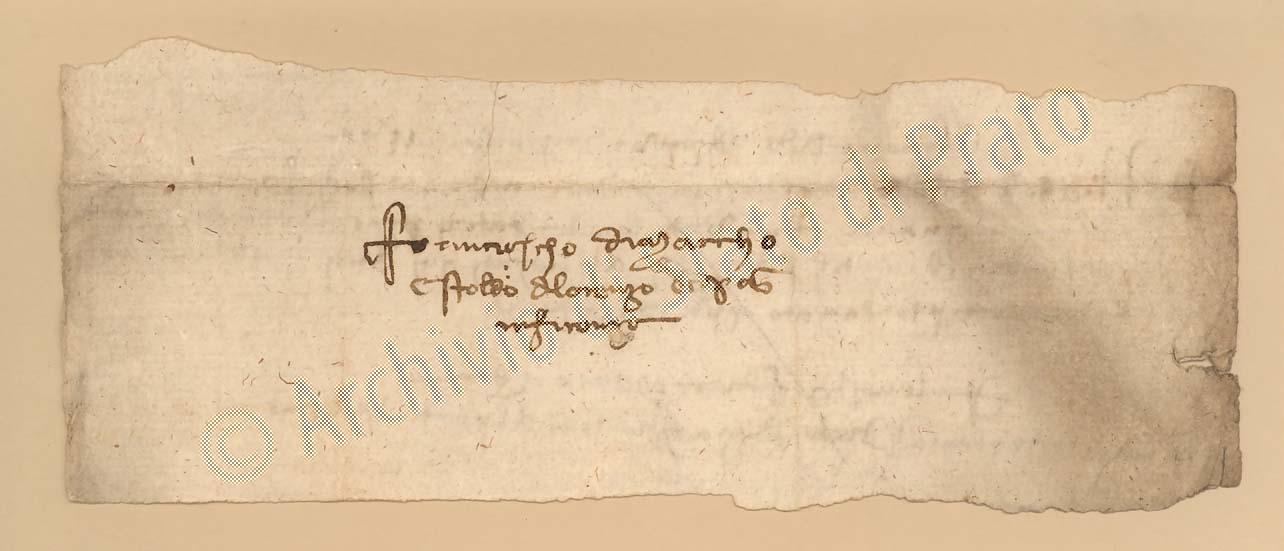 Francischo di Marcho
e Stoldo di Lorenzo di Prato
in Firenze
© Archivio di Stato di Prato